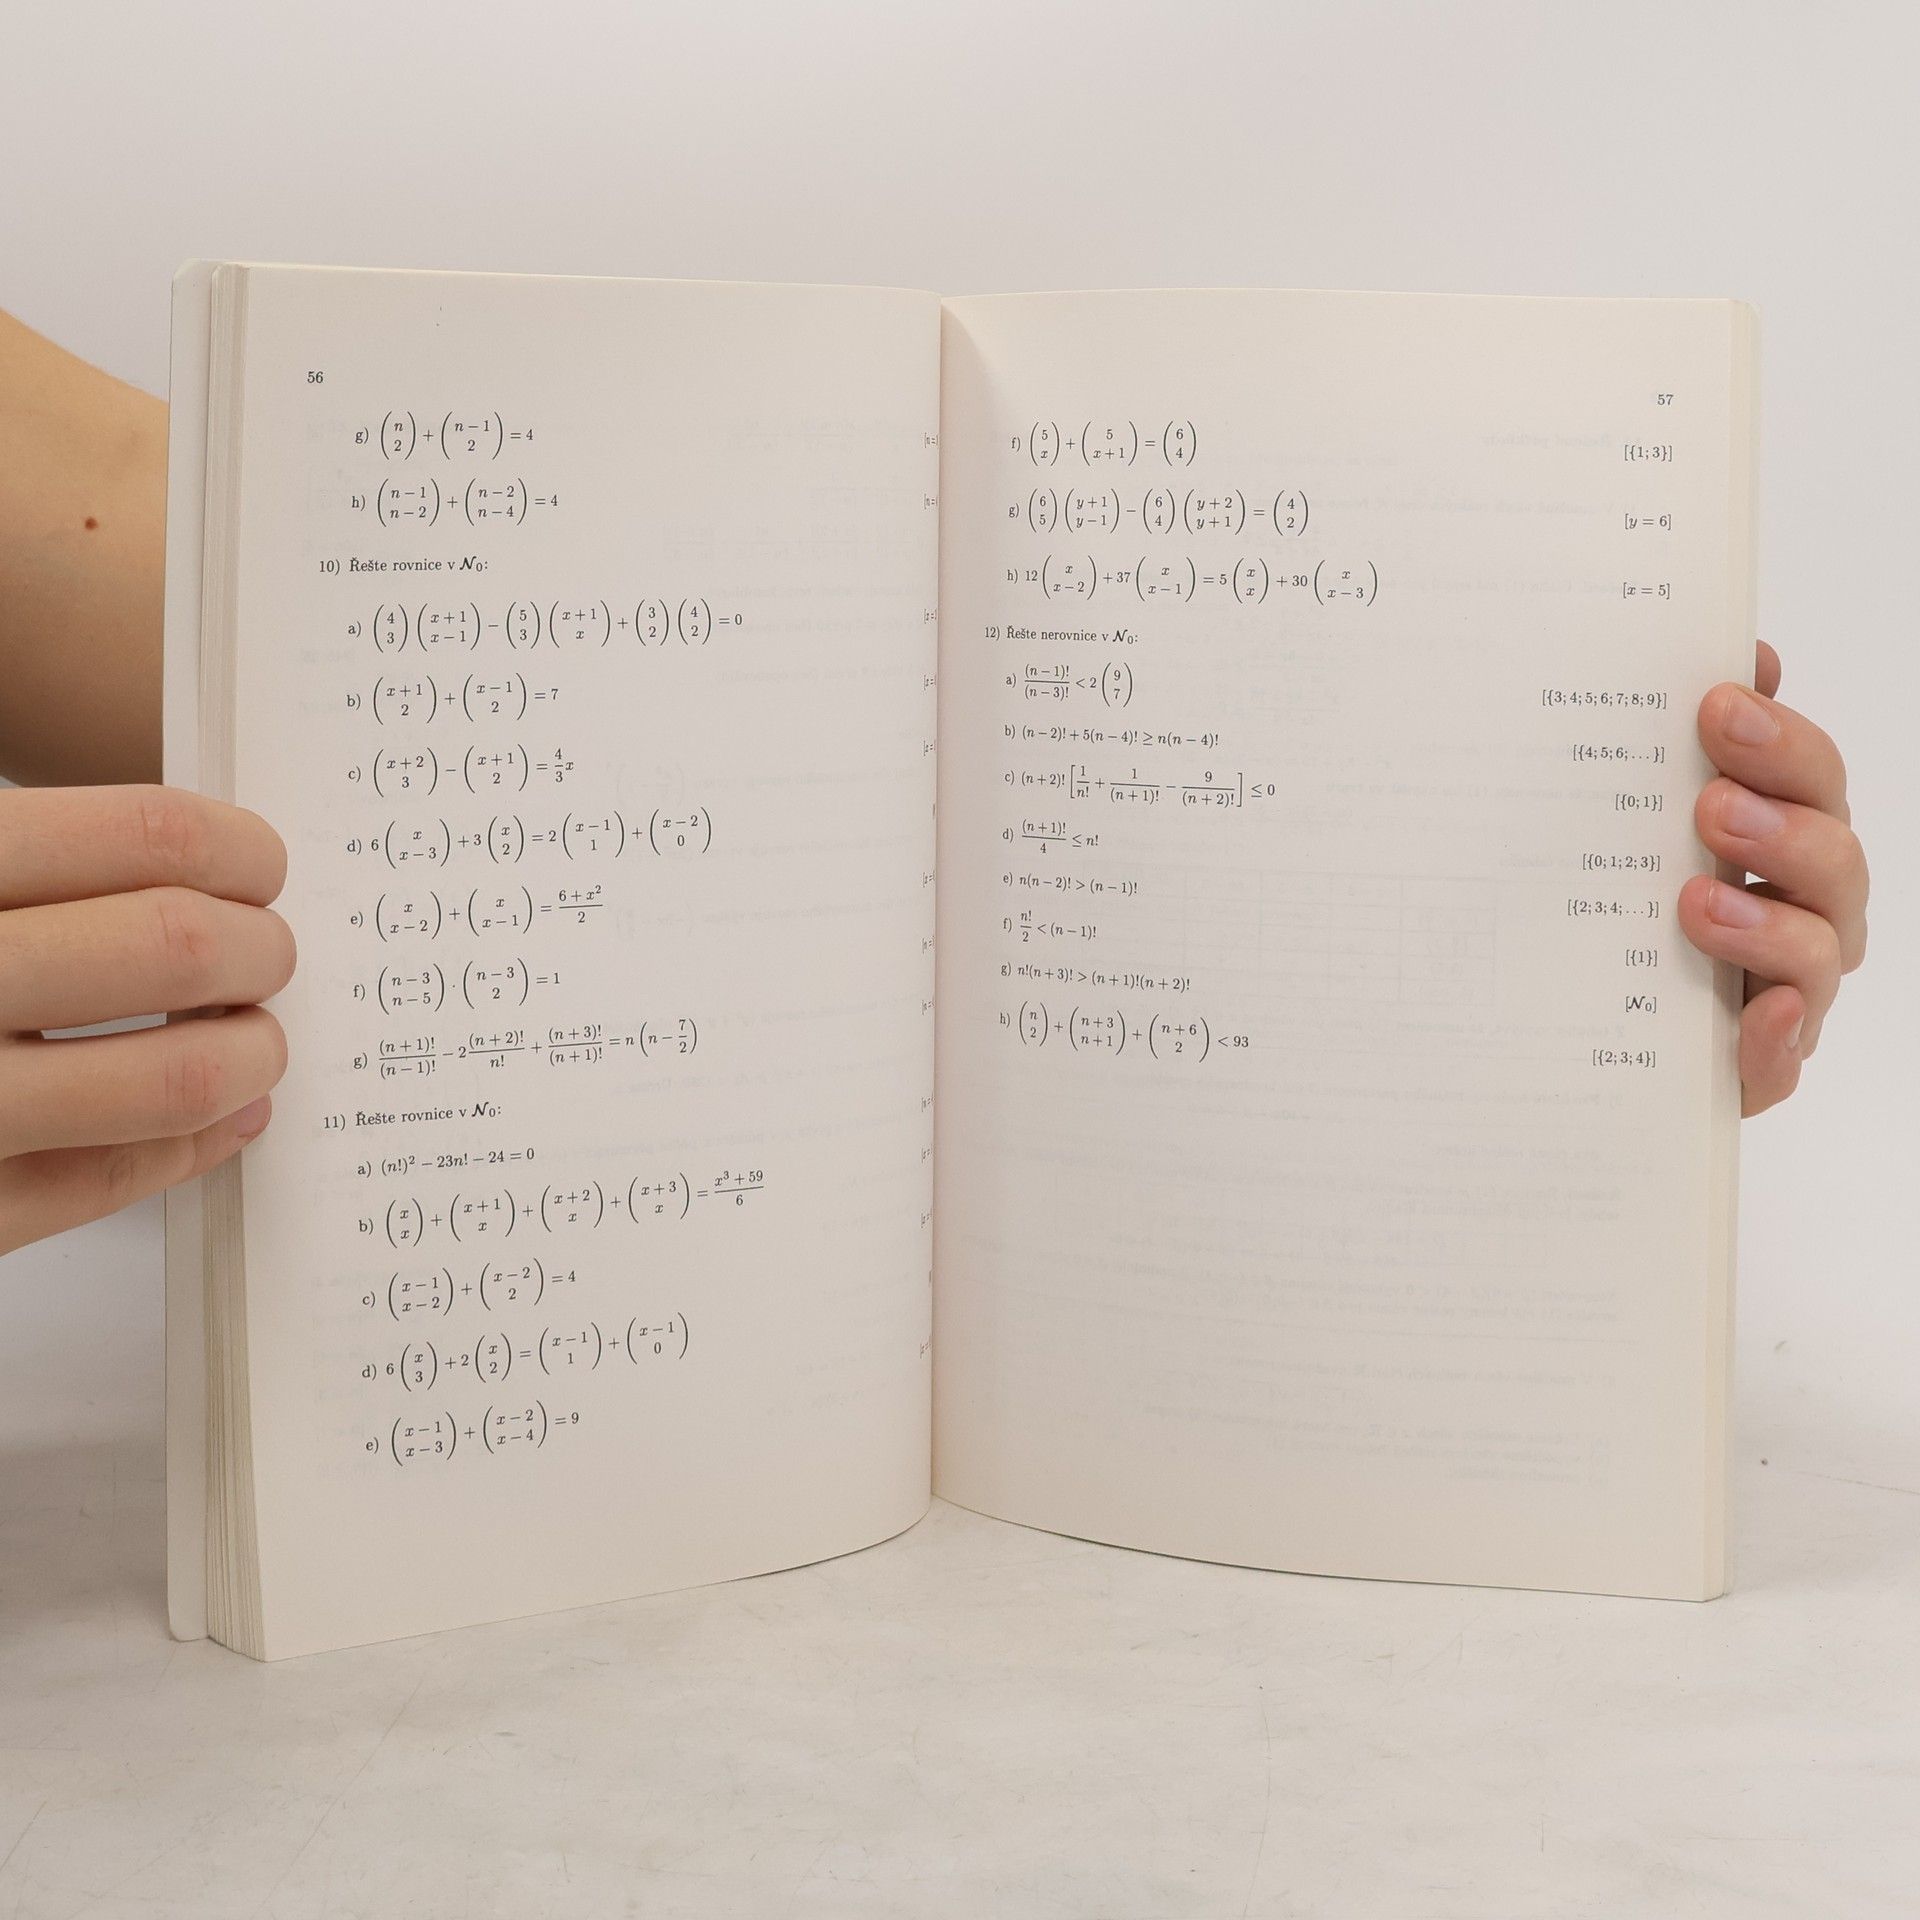 56
g) \binom{n}{2} + \binom{n-1}{2} = 4
h) \binom{n-1}{n-2} + \binom{n-2}{n-4} = 4
10) Řešte rovnice v \mathcal{N}_0:
a) \binom{4}{3}\binom{x+1}{x-1} - \binom{5}{3}\binom{x+1}{x} + \binom{3}{2}\binom{4}{2} = 0
b) \binom{x+1}{2} + \binom{x-1}{2} = 7
c) \binom{x+2}{3} - \binom{x+1}{2} = \frac{4}{3}x
d) 6\binom{x}{x-3} + 3\binom{x}{2} = 2\binom{x-1}{1} + \binom{x-2}{0}
e) \binom{x}{x-2} + \binom{x}{x-1} = \frac{6+x^2}{2}
f) \binom{n-3}{n-5} \cdot \binom{n-3}{2} = 1
g) \frac{(n+1)!}{(n-1)!} - 2\frac{(n+2)!}{n!} + \frac{(n+3)!}{(n+1)!} = n\left(n - \frac{7}{2}\right)
11) Řešte rovnice v \mathcal{N}_0:
a) (n!)^2 - 23n! - 24 = 0
b) \binom{x}{x} + \binom{x+1}{x} + \binom{x+2}{x} + \binom{x+3}{x} = \frac{x^3+59}{6}
c) \binom{x-1}{x-2} + \binom{x-2}{2} = 4
d) 6\binom{x}{3} + 2\binom{x}{2} = \binom{x-1}{1} + \binom{x-1}{0}
e) \binom{x-1}{x-3} + \binom{x-2}{x-4} = 9
57
f) \binom{5}{x} + \binom{5}{x+1} = \binom{6}{4} [{1; 3}]
g) \binom{6}{5}\binom{y+1}{y-1} - \binom{6}{4}\binom{y+2}{y+1} = \binom{4}{2} [y = 6]
h) 12\binom{x}{x-2} + 37\binom{x}{x-1} = 5\binom{x}{x} + 30\binom{x}{x-3} [x = 5]
12) Řešte nerovnice v \mathcal{N}_0:
a) \frac{(n-1)!}{(n-3)!} < 2\binom{9}{7} [{3; 4; 5; 6; 7; 8; 9}]
b) (n-2)! + 5(n-4)! ≥ n(n-4)! [{4; 5; 6; ...}]
c) (n+2)! \left[\frac{1}{n!} + \frac{1}{(n+1)!} - \frac{9}{(n+2)!}\right] ≤ 0 [{0; 1}]
d) \frac{(n+1)!}{4} ≤ n! [{0; 1; 2; 3}]
e) n(n-2)! > (n-1)! [{2; 3; 4; ...}]
f) \frac{n!}{2} < (n-1)! [{1}]
g) n!(n+3)! > (n+1)!(n+2)! [\mathcal{N}_0]
h) \binom{n}{2} + \binom{n+3}{n+1} + \binom{n+6}{2} < 93 [{2; 3; 4}]